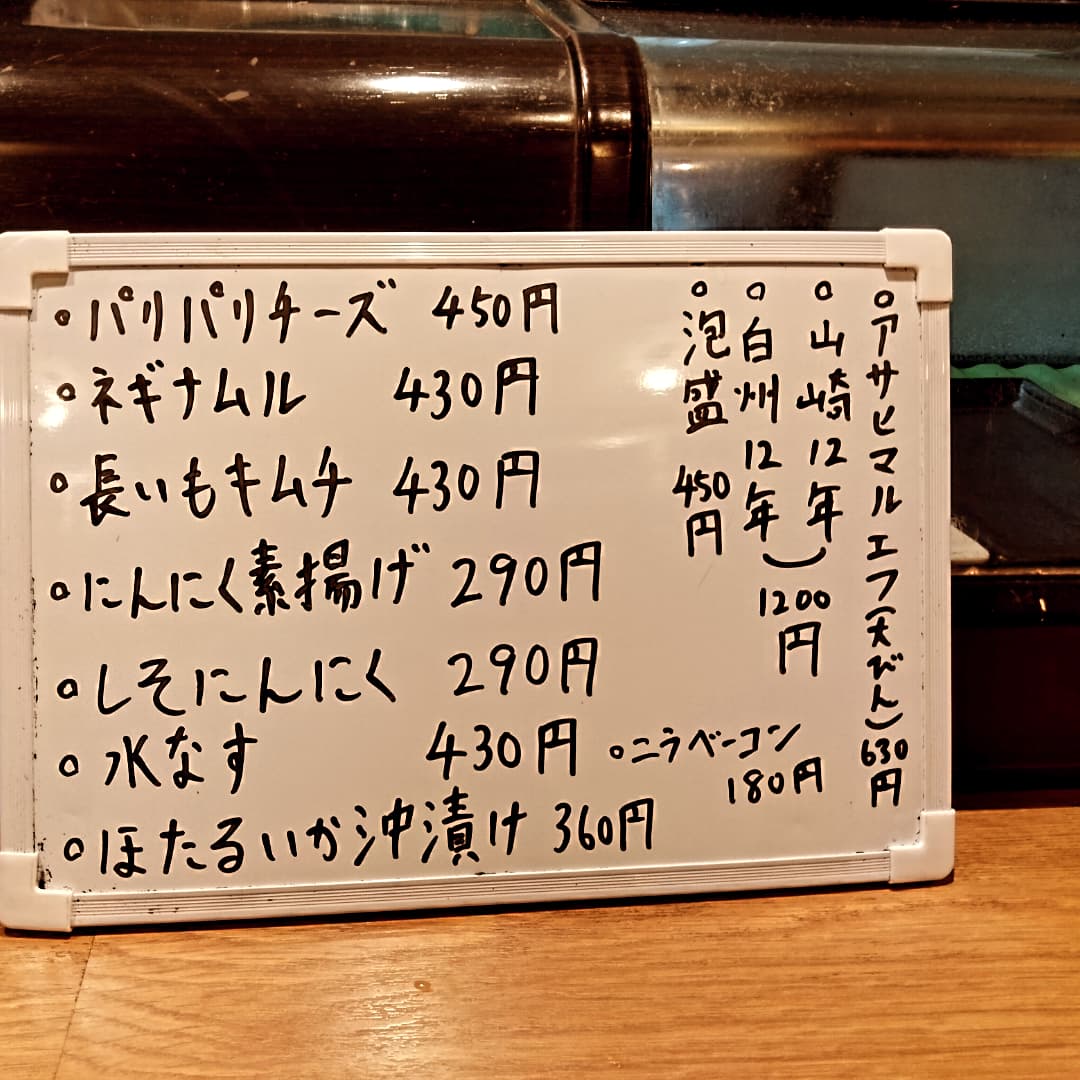 ○パリパリチーズ 450円
○ネギナムル 430円
○長いもキムチ 430円
○にんにく素揚げ 290円
○しそにんにく 290円
○水なす 430円
○ほたるいか沖漬け 360円
○アサヒマルエフ(大びん)630円
○山崎12年
○白州12年
1200円
○泡盛 450円
○ニラベーコン
180円